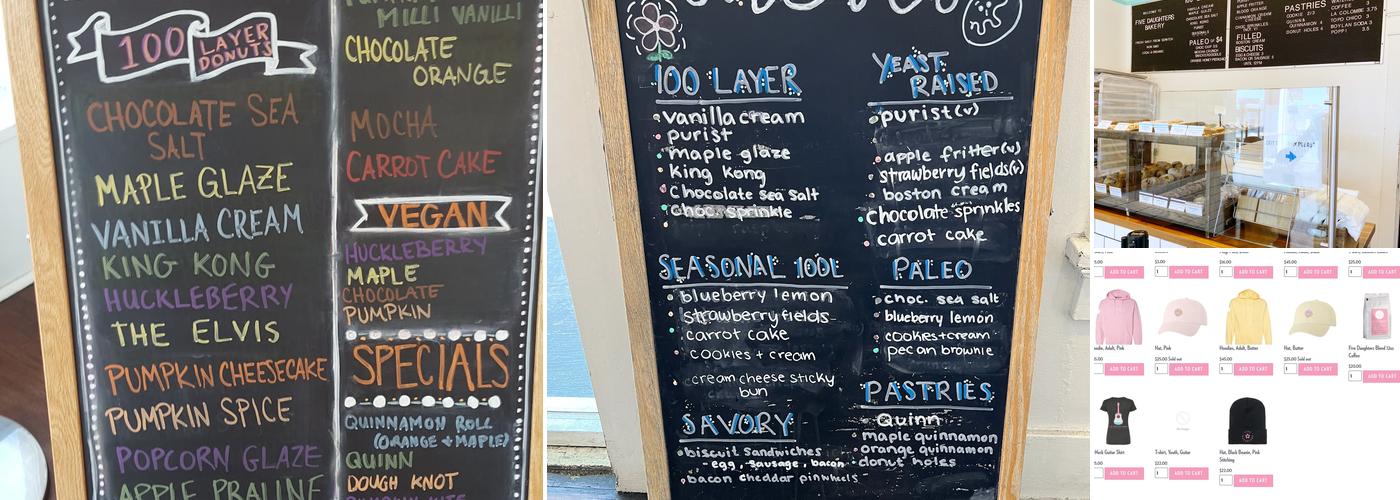 100 LAYER
DONUTS
CHOCOLATE SEA
SALT
MAPLE GLAZE
VANILLA CREAM
KING KONG
HUCKLEBERRY
THE ELVIS
PUMPKIN CHEESECAKE
PUMPKIN SPICE
POPCORN GLAZE
APPLE PRALINE
MILLI VANILLI
CHOCOLATE
ORANGE
MOCHA
CARROT CAKE
VEGAN
HUCKLEBERRY
MAPLE
CHOCOLATE
PUMPKIN
SPECIALS
QUINNAMON ROLL
(ORANGE + MAPLE)
QUINN
DOUGH KNOT
100 LAYER
vanilla cream
purist
maple glaze
king kong
chocolate sea salt
choc. sprinkle
SEASONAL 100L
blueberry lemon
strawberry fields
carrot cake
cookies + cream
cream cheese sticky
bun
SAVORY
biscuit sandwiches
- egg, sausage, bacon
bacon cheddar pinwheels
YEAST
RAISED
purist (v)
apple fritter (v)
strawberry fields (v)
boston cream
chocolate sprinkles
carrot cake
PALEO
choc. sea salt
blueberry lemon
cookies + cream
pecan brownie
PASTRIES
Quinn
maple quinnamon
orange quinnamon
donut holes
WELCOME TO
FIVE DAUGHTERS
BAKERY
VANILLA CREAM
MAPLE GLAZE
CHOCOLATE SEA SALT
KING KONG
PURIST
PALEO GF $4
FILLED
BOSTON CREAM
BISCUITS
PASTRIES
COOKIE 2/3
QUINN 4
DONUT HOLES 4
COFFEE 3
LA COLOMBE 3.75
TOPO CHICO 3
BOYLAN SODA 3
POPPI 3.5
ADD TO CART
$3.00
1 ADD TO CART
$16.00
1 ADD TO CART
$45.00
1 ADD TO CART
$25.00
1 ADD TO CART
Hoodies, Adult, Pink
ADD TO CART
Hat, Pink
$25.00 Sold out
1 ADD TO CART
Hoodies, Adult, Butter
$45.00
1 ADD TO CART
Hat, Butter
$25.00 Sold out
1 ADD TO CART
Five Daughters Blend 12oz
Coffee
$20.00
1 ADD TO CART
Neck Guitar Shirt
ADD TO CART
T-shirt, Youth, Guitar
$22.00
1 ADD TO CART
Hat, Black Beanie, Pink
Stitching
$22.00
1 ADD TO CART